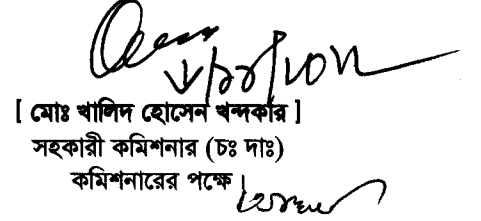 [ মোঃ খালিদ হোসেন খন্দকার ]
সহকারী কমিশনার (চঃ দাঃ)
কমিশনারের পক্ষে।